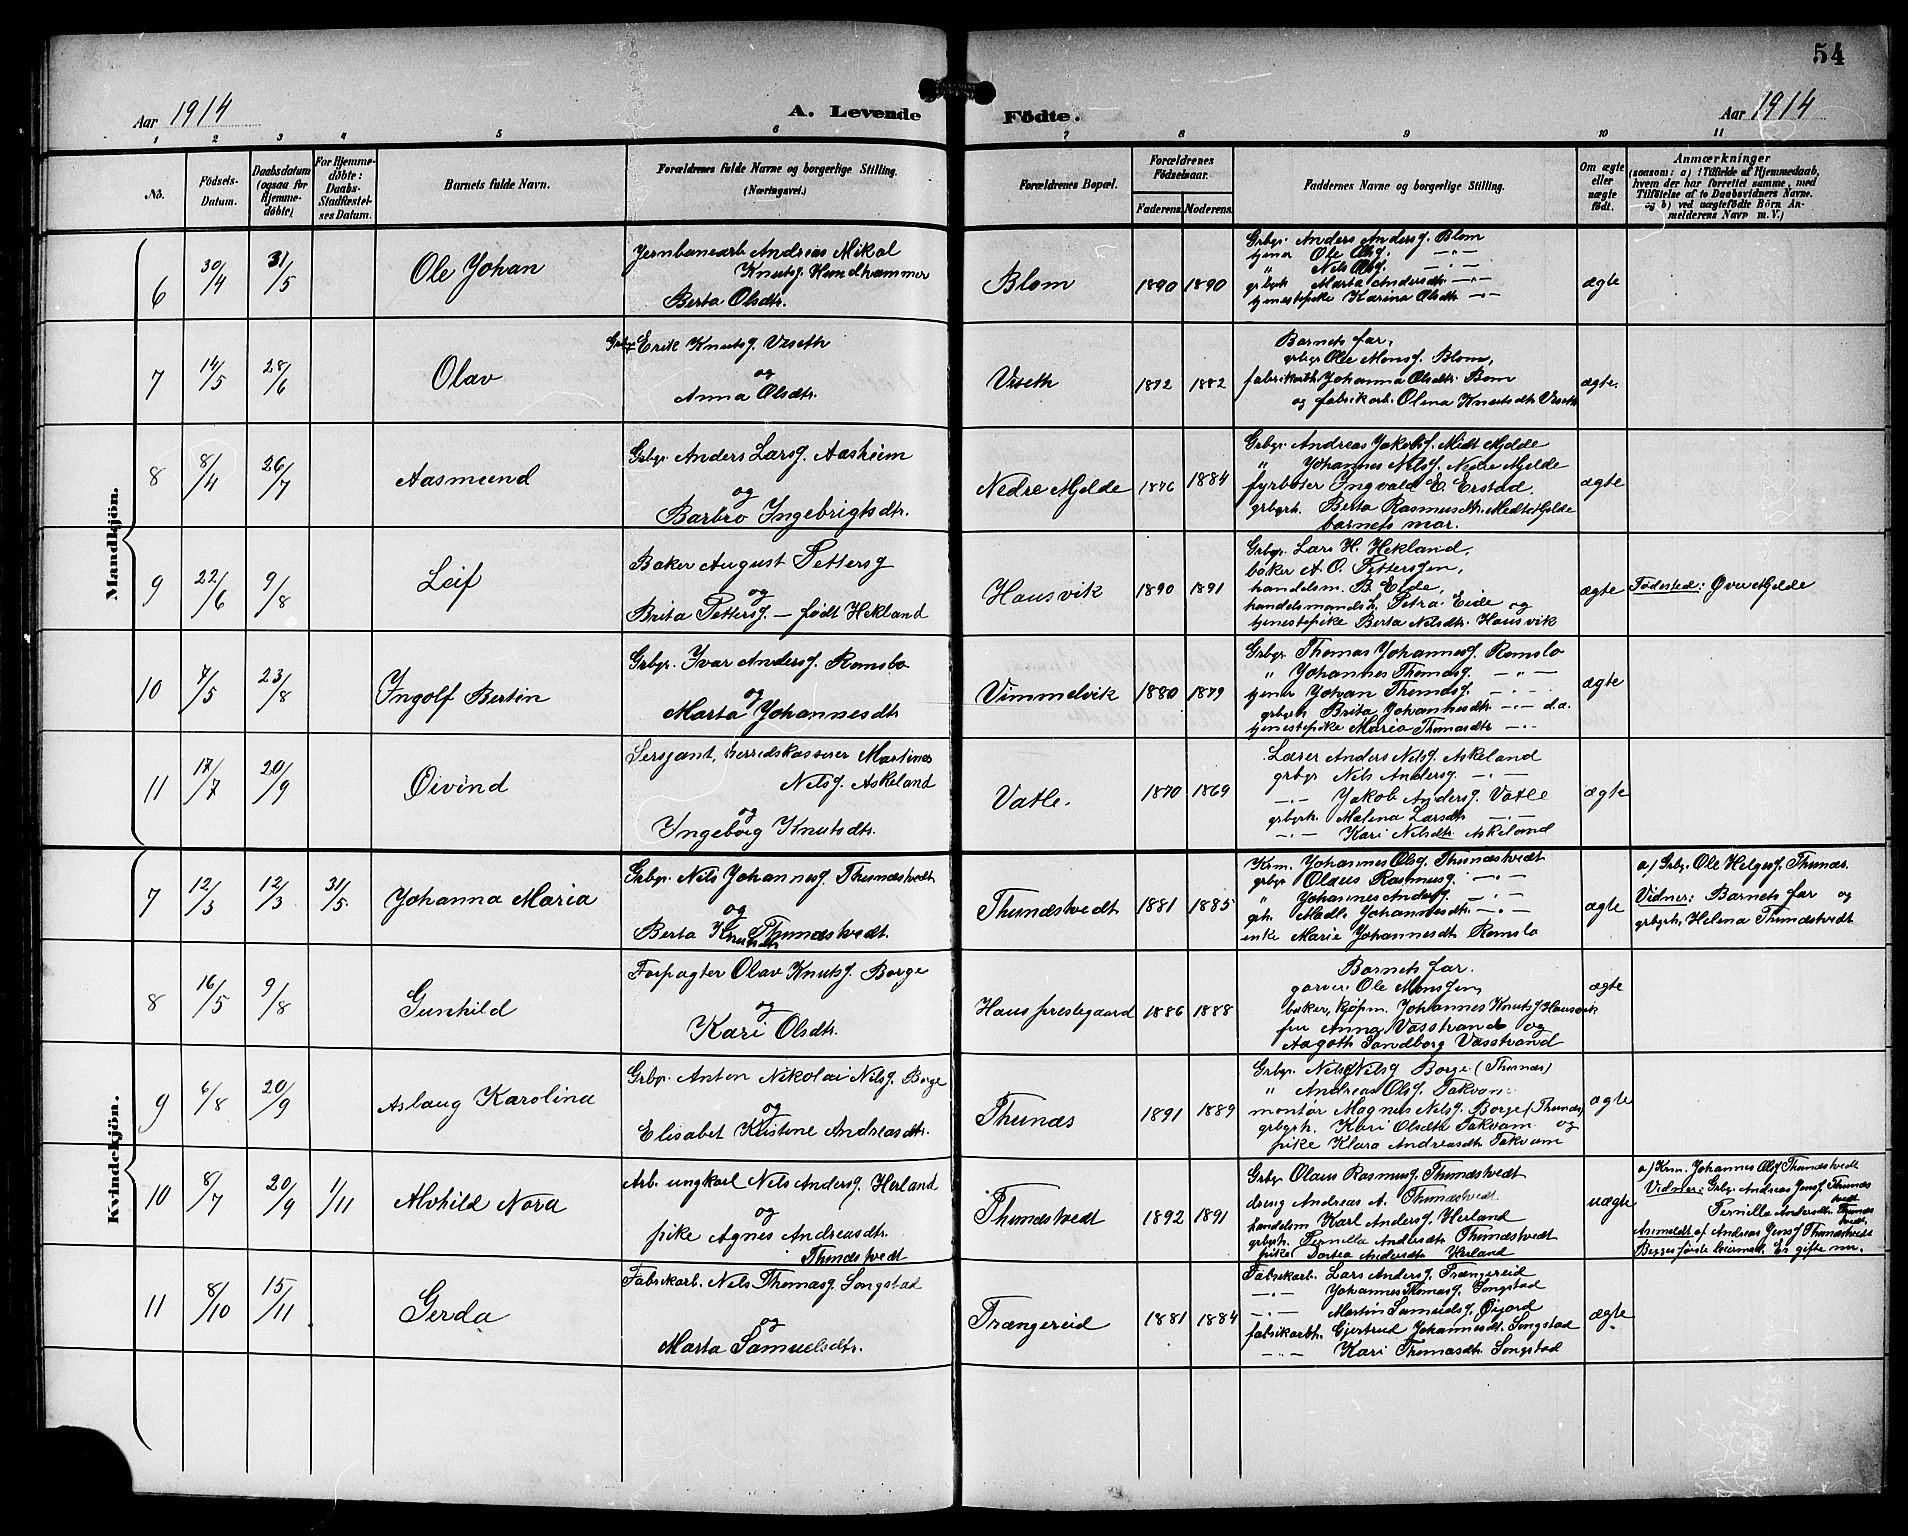 54
Aar 1914
A. Levende
Födte.
Aar 1914
1 2 3 4 5 6 7 8 9 10 11
No.
Födsels-
Datum.
Daabsdatum
(ogsaa for
Hjemme-
döbte)
For Hjemme-
döbte:
Daabs-
Stadfæstel-
ses Datum.
Barnets fulde Navn.
Forældrenes fulde Navne og borgerlige Stilling.
(Næringsvei.)
Forældrenes Bopæl.
Forældrenes
Födselsaar.
Faderens. Moderens.
Faddernes Navne og borgerlige Stilling.
Om ægte
eller
uægte
födt.
Anmærkninger
(saasom: a) i Tilfælde af Hjemmedaab,
hvem der har forrettet samme, med
Tilföielse af to Daabsvidners Navne.
og b) ved uægtefödte Börn An-
melderens Navn m. V.)
Mandkjön.
6 30/4 31/5 Ole Johan
Jernbanearb. Andreas Mikal
Knutsg. Hundhammer
Berta Olsdtr.
Blom 1890 1890
Grbgr. Anders Andersg. Blom
tjener Ole Olsg. —"—
" Nils Olsg. —"—
grbgrh. Marta Andersdtr. —"—
tjenestepike Karina Olsdtr. —"—
ægte
7 14/5 28/6 Olav
Grbgr. Erik Knutsg. Veseth
og
Anna Olsdtr.
Veseth 1872 1882
Barnets far,
grbgr. Ole Monsg. Blom,
fabrikarbh. Johanna Olsdtr. Bom
og fabrikarb. Olina Knutsdtr. Veseth
ægte.
8 8/4 26/7 Aasmund
Grbgr. Anders Larsg. Aasheim
og
Barbro Ingebrigtsdtr.
Nedre Mjelde 1876 1884
Grbgr. Andreas Jakobsg. Midt Mjelde
" Johannes Nilsg. Nedre Mjelde
fyrbøter Ingvald E. Erstad,
grbgrh. Berta Rasmusdtr. Midt Mjelde
barnets mor.
ægte
9 22/6 9/8 Leif
Baker August Pettersg
og
Brita Pettersg. — født Hekland
Hausvik 1890 1891
Grbgr. Lars H. Hekland,
baker A. O. Petterssen,
handelsm. B. Eide,
handelsmandsh. Petra Eide og
tjenestepike Berta Nilsdtr. Hausvik
ægte
Fødested: Øvre Mjelde
10 7/5 23/8 Ingolf Bertin
Grbgr. Ivar Andersg. Romslo
og
Marta Johannesdtr.
Vimmelvik 1880 1879
Grbgr. Thomas Johannesg. Romslo
" Johannes Thomasg. —"—
tjener Johan Thomasg. —"—
grbgrh. Brita Johannesdtr. —"— d.æ.
tjenestepike Maria Thomasdtr. —"—
ægte
11 17/7 20/9 Øivind
Sersjant, herredskasserer Martinus
Nilsg. Askeland
og
Ingeborg Knutsdtr.
Vatle. 1870 1869
Lærer Anders Nilsg. Askeland
grbgr. Nils Andersg. —"—
—"— Jakob Andersg. Vatle
grbgrh. Malena Larsdtr. —"—
—"— Kari Nilsdtr. Askeland
ægte
Kvindekjön.
7 12/3 12/3 31/5. Johanna Maria
Grbgr. Nils Johannesg. Thunæstvedt
og
Berta Knutsdtr. Thunæstvedt.
Thunæstvedt 1881 1885
Krm. Johannes Olsg. Thunæstvedt
grbgr. Olaus Rasmusg. —"—
" Johannes Andersg. —"—
grh. Madli Johannesdtr. —"—
enke Marie Johannesdtr. Romslo
ægte
a) Grbgr. Ole Helgesg. Thunæs.
Vidner: Barnets far og
grbgrh. Helena Thunæstvedt
8 16/5 9/8 Gunhild
Forpagter Olav Knutsg. Borge
og
Kari Olsdtr.
Haus prestegaard 1886 1888
Barnets far.
garver Ole Monssen,
baker, kjøpm. Johannes Knutsg. Hausvik
fru Anna Vasstrand og
Aagoth Sandborg Vasstrand
ægte
9 6/8 20/9 Aslaug Karolina
Grbgr. Anton Nikolai Nilsg. Borge
og
Elisabet Kristine Andreasdtr.
Thunæs 1891 1889
Grbgr. Nils Nilsg Borge (Thunæs)
" Andreas Olsg. Takvam
montør Magnus Nilsg. Borge (Thunæs)
grbgrh. Kari Olsdtr. Takvam og
pike Klara Andreasdtr. Takvam
ægte
10 8/7 20/9 1/11 Alvhild Nora
Arb. ungkarl Nils Andersg. Herland
og
pike Agnes Andreasdtr.
Thunæstvedt
Thunæstvedt 1892 1891
Grbgr. Olaus Rasmusg. Thunæstvedt
dreng Andreas A. Thunæstvedt
handelsm. Karl Andersg. Herland
grbgrh. Pernilla Andersdtr. Thunæstvedt
pike Dortea Andersdtr. Herland
uægte
a) Krm. Johannes Olsg. Thunæstvedt
Vidner: Grbgr. Andreas Jensg. Thunæs
tvedt
Pernilla Andersdtr. Thunæs
tvedt.
Anmeldt af Andreas Jensg. Thunæstvedt
Begges første leiermaal. Er gifte nu.
11 8/10 15/11 Gerda
Fabrikarb. Nils Thomasg. Songstad
og
Marta Samuelsdtr.
Trængereid 1881 1884
Fabrikarb. Lars Andersg. Trængereid
—"— Johannes Thomasg. Songstad
—"— Martin Samuelsg. Øijord
fabrikarbh. Gjertrud Johannesdt. Songstad
—"— Kari Thomasdtr. Songstad
ægte